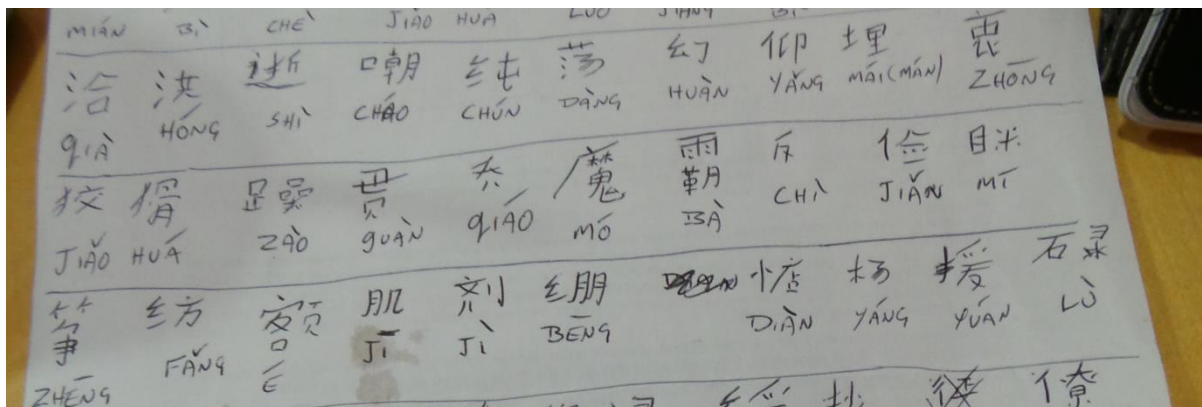 MIÁN BÌ CHÈ JIǍO HUÁ
洽 洪 逝 嘲 纯 荡 幻 仰 埋 衷
qIÀ HÓNG SHÌ CHÁO CHÚN DÀNG HUÀN YǍNG MÁI(MÁN) ZHŌNG
狡 猾 躁 贯 乔 魔 霸 斥 俭 眯
JIǍO HUÁ ZÀO gUÀN qIÁO MÓ BÀ CHÌ JIǍN MĪ
筝 纺 额 肌 剂 绷 惦 杨 援 碌
ZHĒNG FǍNG É JĪ JÌ BĒNG DIÀN YÁNG YUÁN LÙ
僚